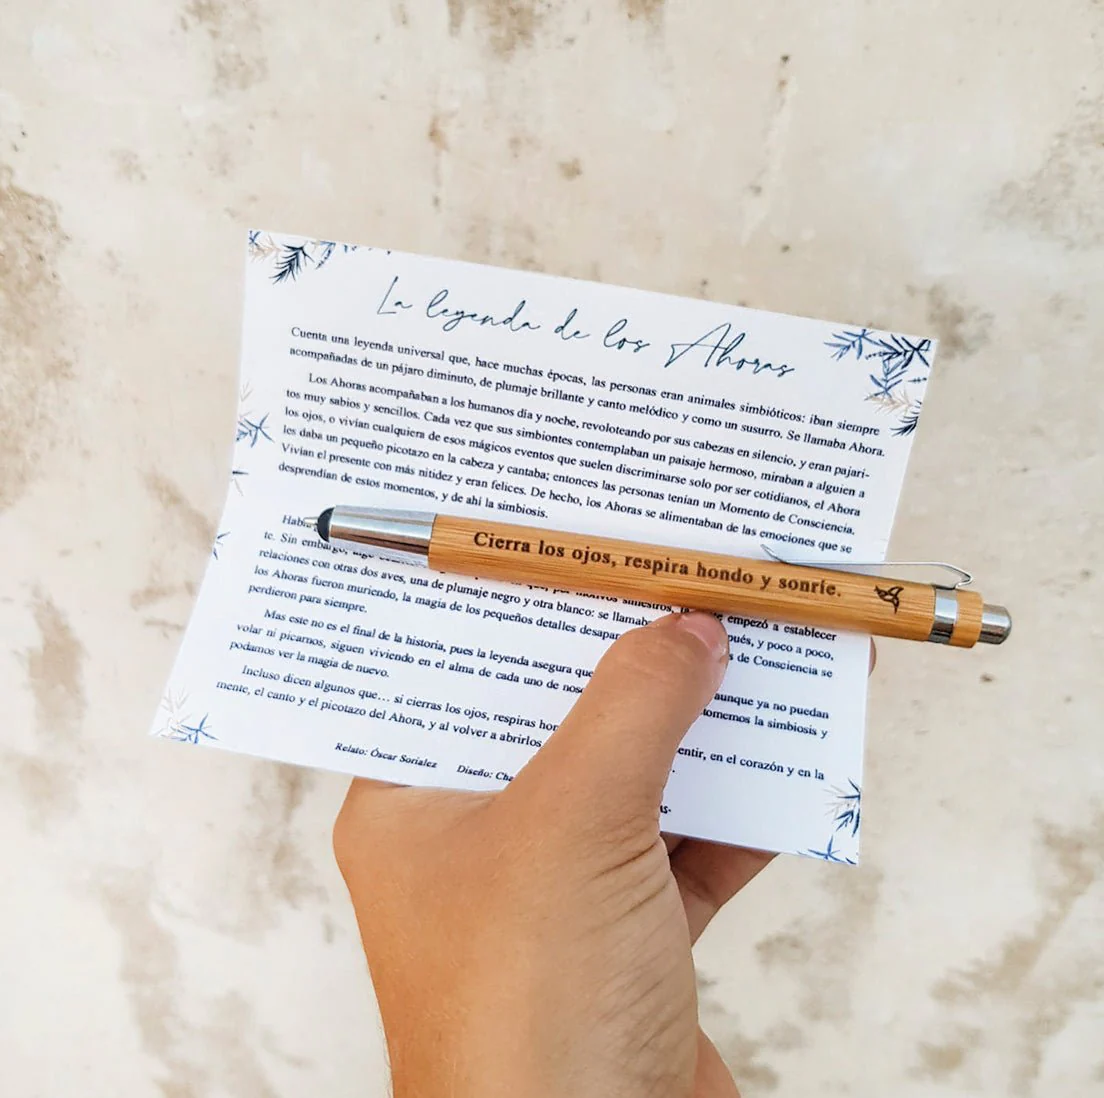 La leyenda de los Ahoras
Cuenta una leyenda universal que, hace muchas épocas, las personas eran animales simbióticos: iban siempre
acompañadas de un pájaro diminuto, de plumaje brillante y canto melódico y como un susurro. Se llamaba Ahora.
Los Ahoras acompañaban a los humanos día y noche, revoloteando por sus cabezas en silencio, y eran pajari-
tos muy sabios y sencillos. Cada vez que sus simbiontes contemplaban un paisaje hermoso, miraban a alguien a
los ojos, o vivían cualquiera de esos mágicos eventos que suelen discriminarse solo por ser cotidianos, el Ahora
les daba un pequeño picotazo en la cabeza y cantaba; entonces las personas tenían un Momento de Consciencia.
Vivían el presente con más nitidez y eran felices. De hecho, los Ahoras se alimentaban de las emociones que se
desprendían de estos momentos, y de ahí la simbiosis.
Cierra los ojos, respira hondo y sonríe.
te. Sin embargo, motivos siniestros, empezó a establecer
relaciones con otras dos aves, una de plumaje negro y otra blanco: se llamaban
los Ahoras fueron muriendo, la magia de los pequeños detalles y poco a poco,
perdieron para siempre. s de Consciencia se
Mas este no es el final de la historia, pues la leyenda asegura que aunque ya no puedan
volar ni picarnos, siguen viviendo en el alma de cada uno de la simbiosis y
podamos ver la magia de nuevo.
Incluso dicen algunos que… si cierras los ojos, respiras entir, en el corazón y en la
mente, el canto y el picotazo del Ahora, y al volver a abrirlos
Relato: Óscar Sorialez Diseño: